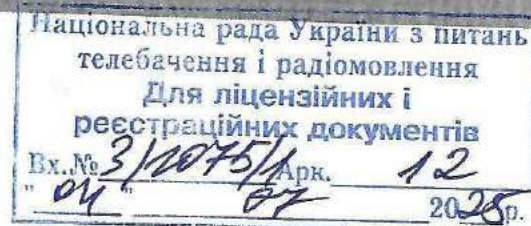 Національна рада України з питань
телебачення і радіомовлення
Для ліцензійних і
реєстраційних документів
Вх.№ 3/2075/1 Арк. 12
"04" 07 2025р.